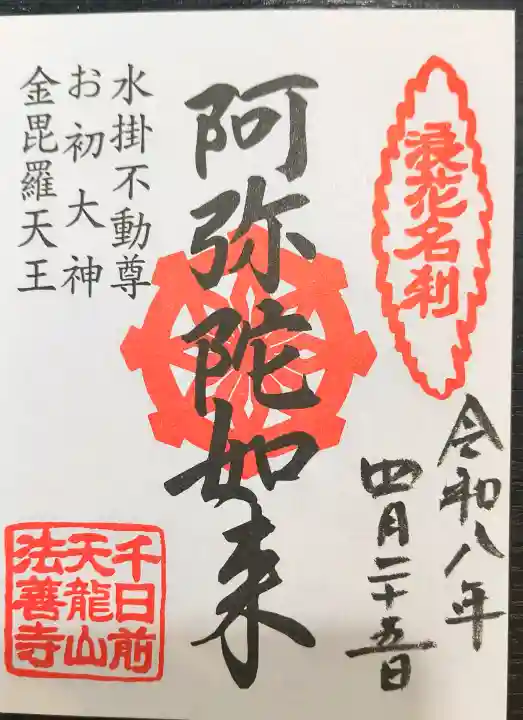 浪花名刹
令和八年
四月二十五日
阿弥陀如来
水掛不動尊
お初大神
金毘羅天王
千日前
天龍山
法善寺